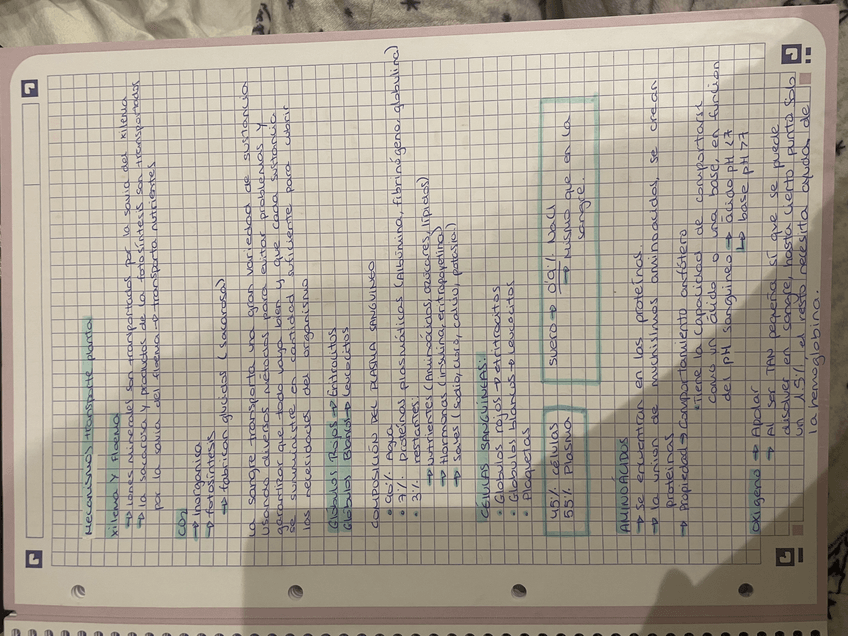 Mecanismos transporte planta
Xilema y Floema
→ iones minerales son transportados por la savia del xilema
→ la sacarosa y productos de la fotosíntesis son transportados
por la savia del floema → transporta nutrientes
CO2
→ Inorgánica
→ fotosíntesis
→ Fabrican glúcidos (sacarosa)
La sangre transporta una gran variedad de sustancia
usando diversos métodos para evitar problemas y
garantizar que todo vaya bien y que cada sustancia
se summinitre en cantidad suficiente para cubrir
las necesidades del organismo
Glóbulos Rojos → Eritrocitos
Glóbulos Blancos → Leucocitos
COMPOSICIÓN DEL PLASMA SANGUÍNEO
• 90% agua
• 7% Proteínas plasmáticas (Albúmina, fibrinógeno, globulina)
• 3% restantes:
→ Nutrientes (Aminoácidos, azúcares, lípidos)
→ Hormonas (insulina, eritropoyetina)
→ Sales (sodio, cloro, calcio, potasio)
CÉLULAS SANGUÍNEAS:
• Glóbulos rojos → eritrocitos
• Glóbulos blancos → leucocitos
• Plaquetas
45% células
55% Plasma
Suero → 0'9% NaCl
→ Mismo que en la
sangre.
AMINOÁCIDOS
→ Se encuentran en las proteínas.
→ la union de muchísimos aminoácidos, se crean
proteínas
→ Propiedad → Comportamiento anfótero
*Tiene la capacidad de comportarse
como un ácido o una base, en funcion
del pH sanguíneo → ácido pH <7
↳ base pH >7
Oxígeno → Apolar
→ Al ser TAN pequeña sí que se puede
disolver en sangre, hasta cierto punto solo
un 1.5% el resto necesita ayuda de
la hemoglobina.